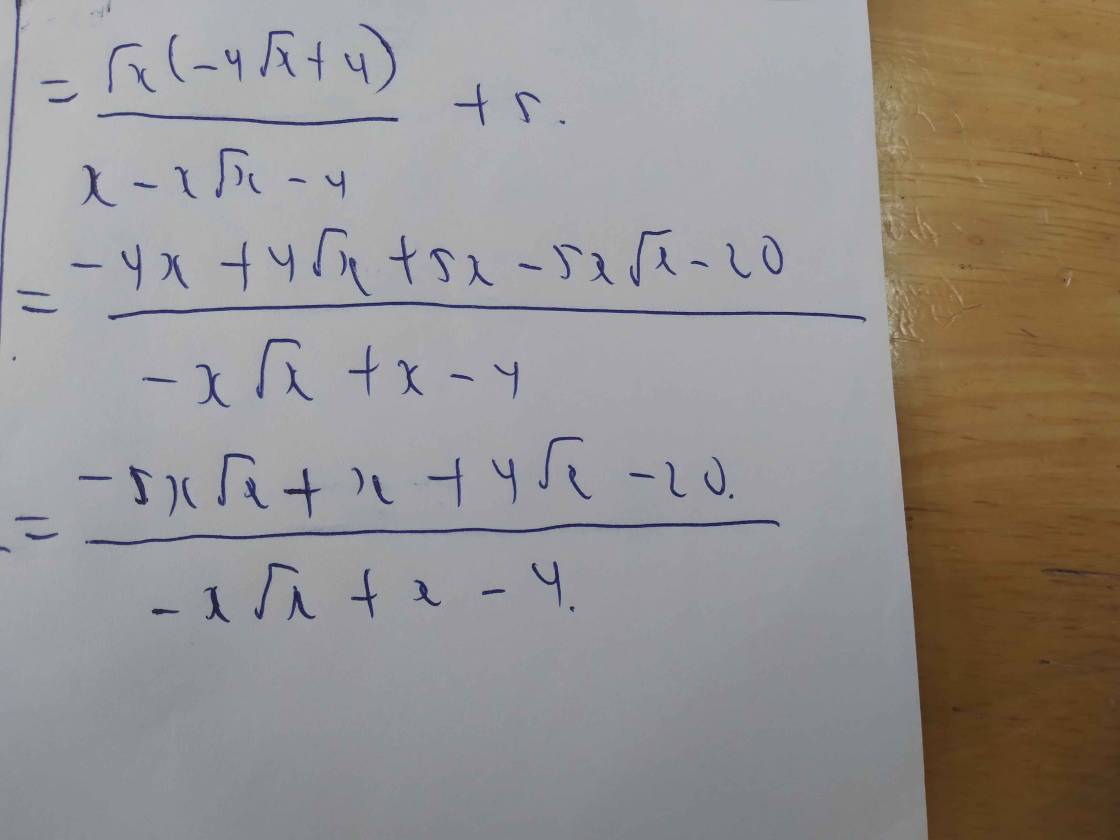 = √x(-4√x+4) / x - x√x - 4 + 5.
= -4x + 4√x + 5x - 5x√x - 20 / -x√x + x - 4
= -5x√x + x + 4√x - 20. / -x√x + x - 4.